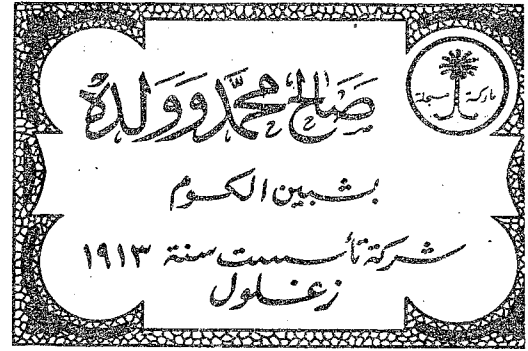 ماركة مسجلة
صالح محمد وولده
بشبين الكوم
شركة تأسست سنة ١٩١٣
زغلول